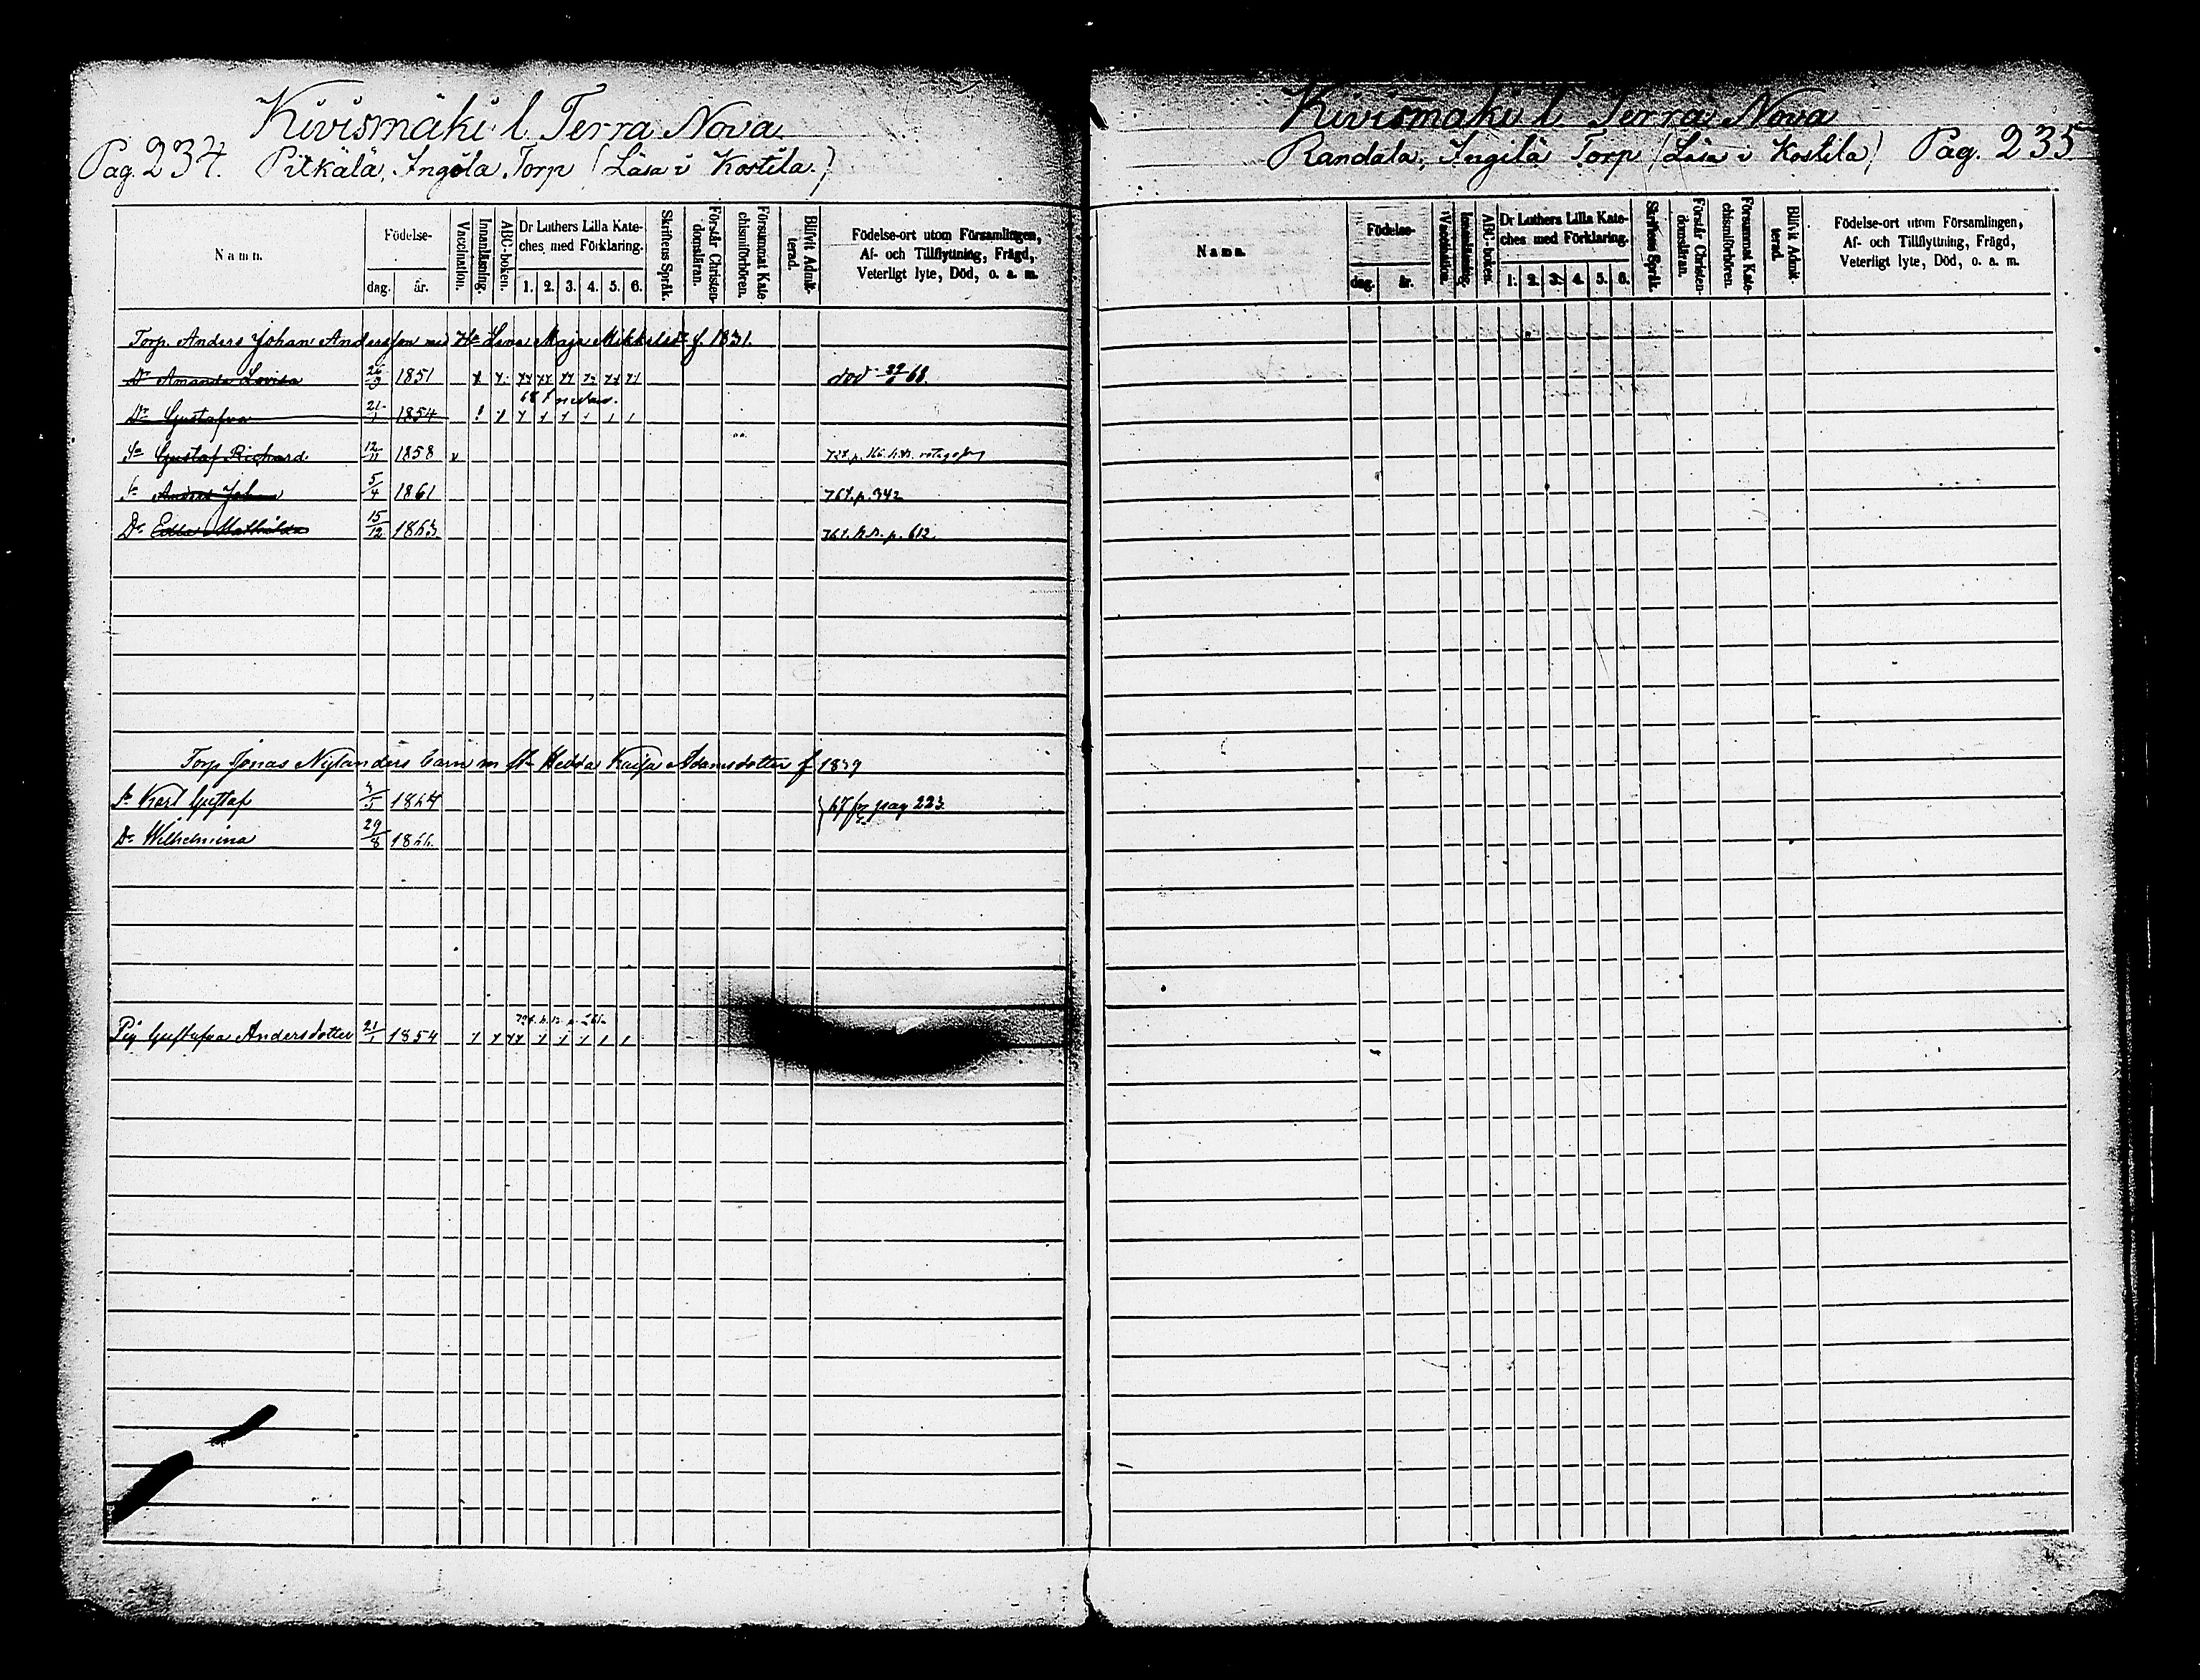 Kivismäki l. Terra Nova
Pag. 234. Pitkälä, Ingila Torp (Läsa i Kostila.)
Namn.
Födelse-
dag. år.
Vaccination.
Innanläsning.
ABC-boken.
Dr Luthers Lilla Kate-
ches med Förklaring.
1. 2. 3. 4. 5. 6.
Skriftens Språk.
Förstår Christen-
domsläran.
Försummat Kate-
chismiförhören.
Blifvit Admit-
terad.
Födelse-ort utom Församlingen,
Af- och Tillflyttning, Frägd,
Veterligt lyte, Död, o. a. m.
Torp. Anders Johan Andersson med Hu Lena Maja Mikkelsdr f. 1831.
Dr Amanda Lovisa 26/9 1851 död 68.
Dr Gustafva 21/1 1854
Sn Gustaf Richard 12/11 1858
Sn Anders Johan 5/4 1861 76 f. p. 342
Dr Edla Mathilda 15/12 1863 76 f. n. n. p. 612.
Torp Jonas Nylanders barn m Hu Hedda Kaisa Adamsdotter f 1839
Sn Karl Gustaf 1864 67 fr pag 223
Dr Wilhelmina 29/8 1866.
Pig Gustafva Andersdotter 21/1 1854
Kivismäki l. Terra Nova
Randala, Ingilä Torp (Läsa i Kostila) Pag. 235
Namn.
Födelse-
dag. år.
Vaccination.
Innanläsning.
ABC-boken.
Dr Luthers Lilla Kate-
ches med Förklaring.
1. 2. 3. 4. 5. 6.
Skriftens Språk.
Förstår Christen-
domsläran.
Försummat Kate-
chismiförhören.
Blifvit Admit-
terad.
Födelse-ort utom Församlingen,
Af- och Tillflyttning, Frägd,
Veterligt lyte, Död, o. a. m.